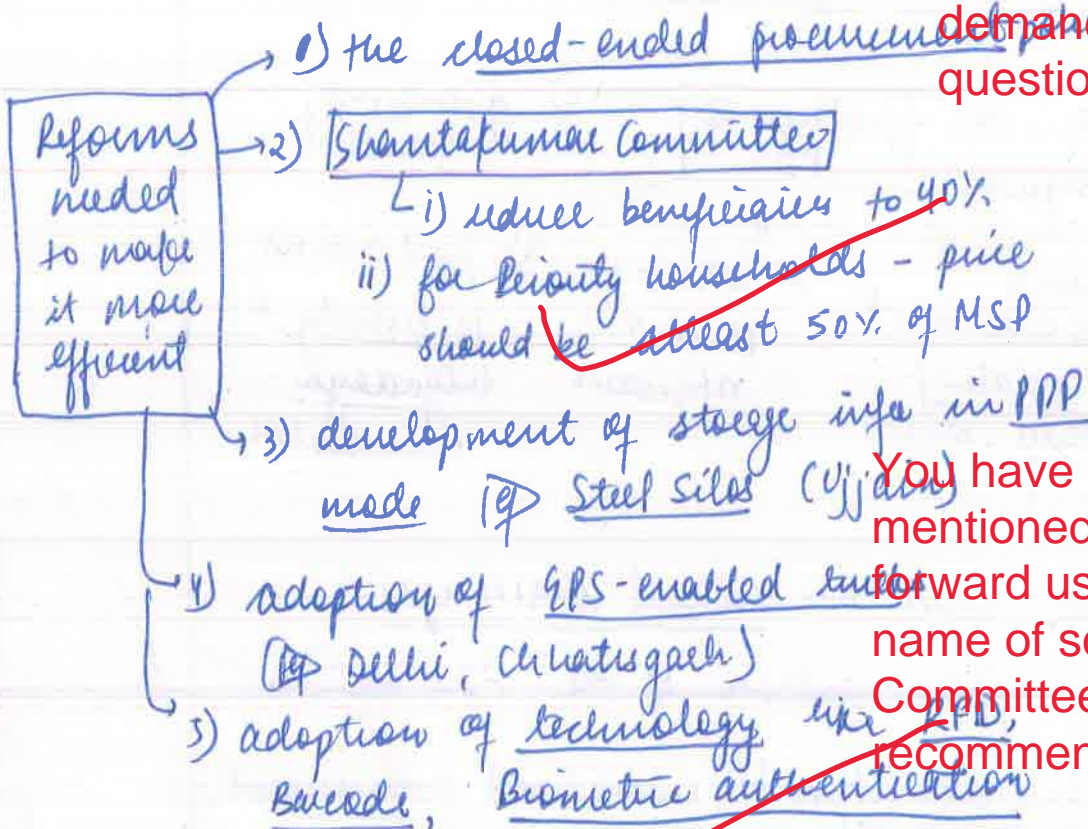 1) the closed-ended procurement
Reforms
needed
to make
it more
efficient
2) Shantakumar Committee
i) reduce beneficiaries to 40%
ii) for Priority households - price
should be atleast 50% of MSP
3) development of storage infra in PPP
mode eg Steel Silos (Ujjain)
4) adoption of GPS-enabled
(eg Delhi, Chhatisgarh)
5) adoption of technology like RFID,
Barcode, Biometric authentication
questio
You have
mentioned
forward us
name of s
Committee
recommen